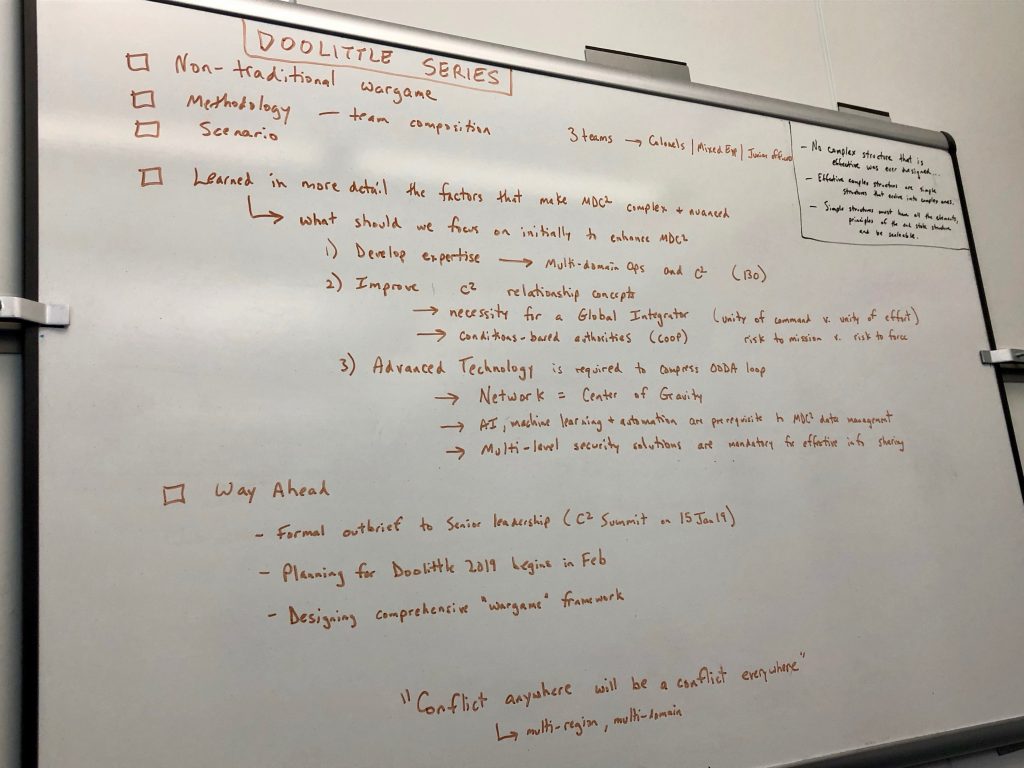 DOOLITTLE SERIES
Non-traditional wargame
Methodology — team composition
3 teams → Colonels | Mixed Exp | Junior officers
Scenario
- No complex structure that is
effective was ever designed...
- Effective complex structures are simple
structures that evolve into complex ones.
- Simple structures must have all the elements,
principles of the end state structure
and be scaleable.
Learned in more detail the factors that make MDC² complex + nuanced
↳ what should we focus on initially to enhance MDC²
1) Develop expertise → Multi-domain Ops and C² (130)
2) Improve C² relationship concepts
→ necessity for a Global Integrator (unity of command v. unity of effort)
→ conditions-based authorities (COOP) risk to mission v. risk to force
3) Advanced Technology is required to compress OODA loop
→ Network = Center of Gravity
→ AI, machine learning + automation are prerequisite to MDC² data management
→ Multi-level security solutions are mandatory for effective info sharing
Way Ahead
- Formal outbrief to Senior leadership (C² Summit on 15 Jan 19)
- Planning for Doolittle 2019 begins in Feb
- Designing comprehensive "wargame" framework
"Conflict anywhere will be a conflict everywhere"
↳ multi-region, multi-domain